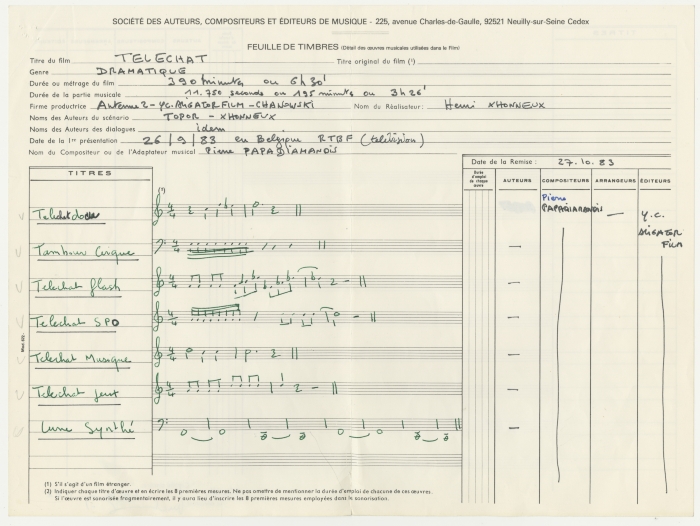 SOCIÉTÉ DES AUTEURS, COMPOSITEURS ET ÉDITEURS DE MUSIQUE - 225, avenue Charles-de-Gaulle, 92521 Neuilly-sur-Seine Cedex
FEUILLE DE TIMBRES (Détail des œuvres musicales utilisées dans le Film)
Titre du film TELECHAT Titre original du film (1)
Genre DRAMATIQUE
Durée ou métrage du film 390 minutes ou 6h30'
Durée de la partie musicale 11.750 seconds ou 195 minutes ou 3h26'
Firme productrice Antenne 2 - YC.ALIGATOR FILM - CHANOWSKI Nom du Réalisateur : Henri XHONNEUX
Noms des Auteurs du scénario TOPOR - XHONNEUX
Noms des Auteurs des dialogues idem
Date de la 1re présentation 26/9/83 en Belgique RTBF (télévision)
Nom du Compositeur ou de l'Adaptateur musical Pierre PAPADIAMANDIS
Date de la Remise : 27.10.83
TITRES
Durée d'emploi de chaque œuvre AUTEURS COMPOSITEURS ARRANGEURS ÉDITEURS
(1)
Pierre PAPADIAMANDIS — Y.C. ALIGATER FILM
Telechat
Tambour Cirque —
Telechat flash —
Telechat SPO —
Telechat Musique —
Telechat —
Lune Synthé —
Mod. 502
(1) S'il s'agit d'un film étranger.
(2) Indiquer chaque titre d'œuvre et en écrire les 8 premières mesures. Ne pas omettre de mentionner la durée d'emploi de chacune de ces œuvres.
Si l'œuvre est sonorisée fragmentairement, il y aura lieu d'inscrire les 8 premières mesures employées dans la sonorisation.